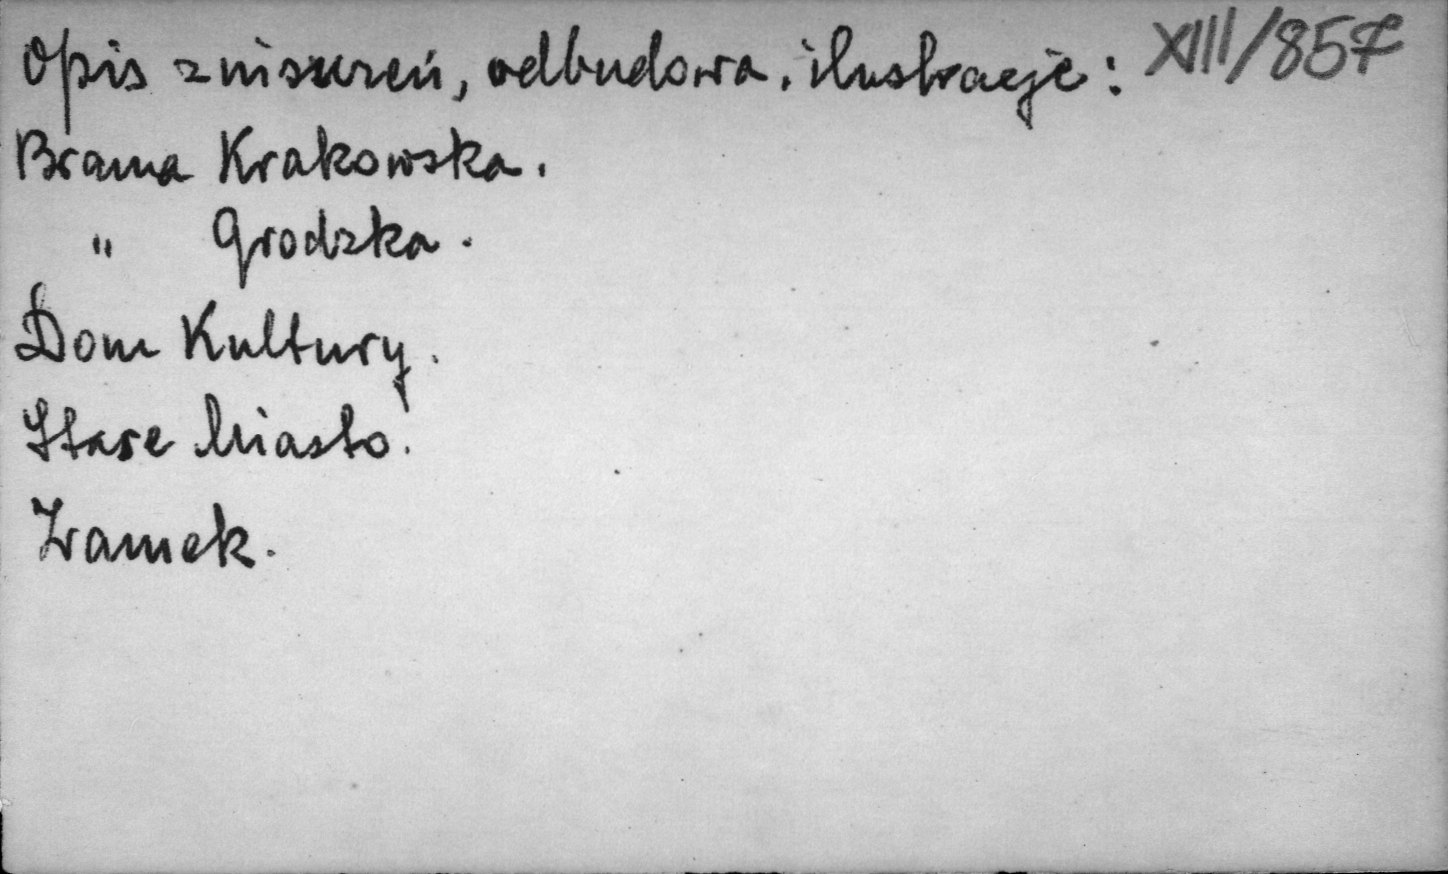 Opis zniszczeń, odbudowa. ilustracje: XIII/857
Brama Krakowska.
" Grodzka.
Dom Kultury.
Stare Miasto.
Zamek.